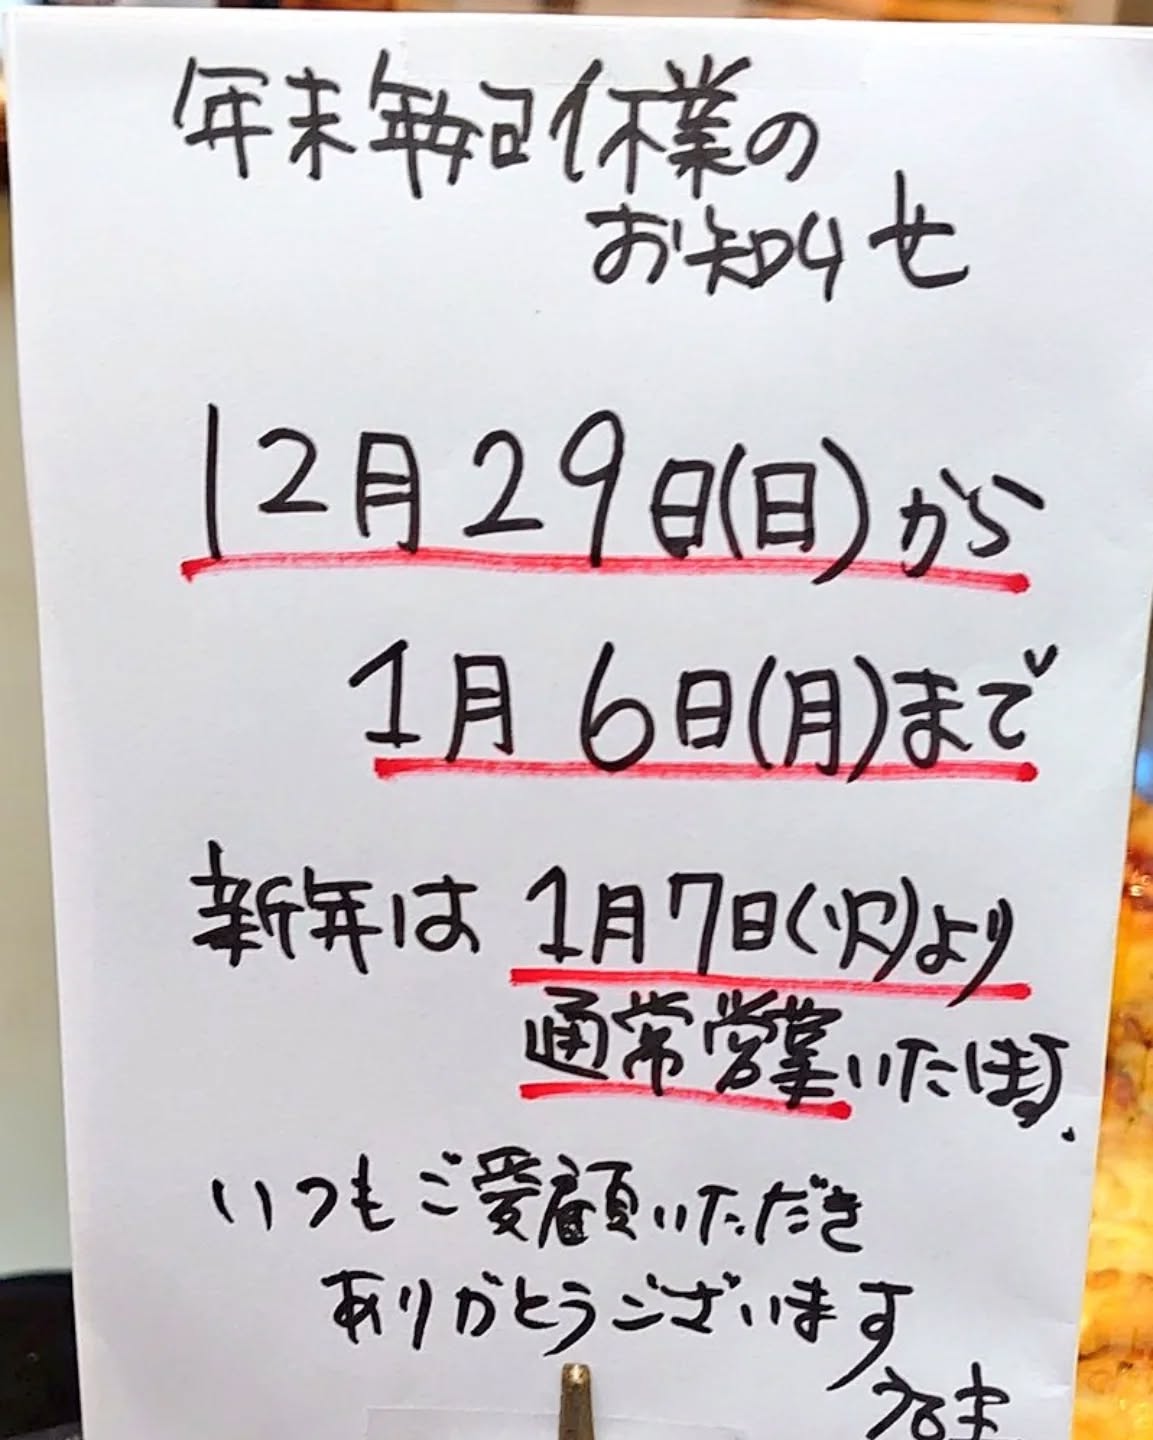 年末年始休業の
お知らせ
12月29日(日)から
1月6日(月)まで
新年は1月7日(火)より
通常営業いたします.
いつもご愛顧いただき
ありがとうございます